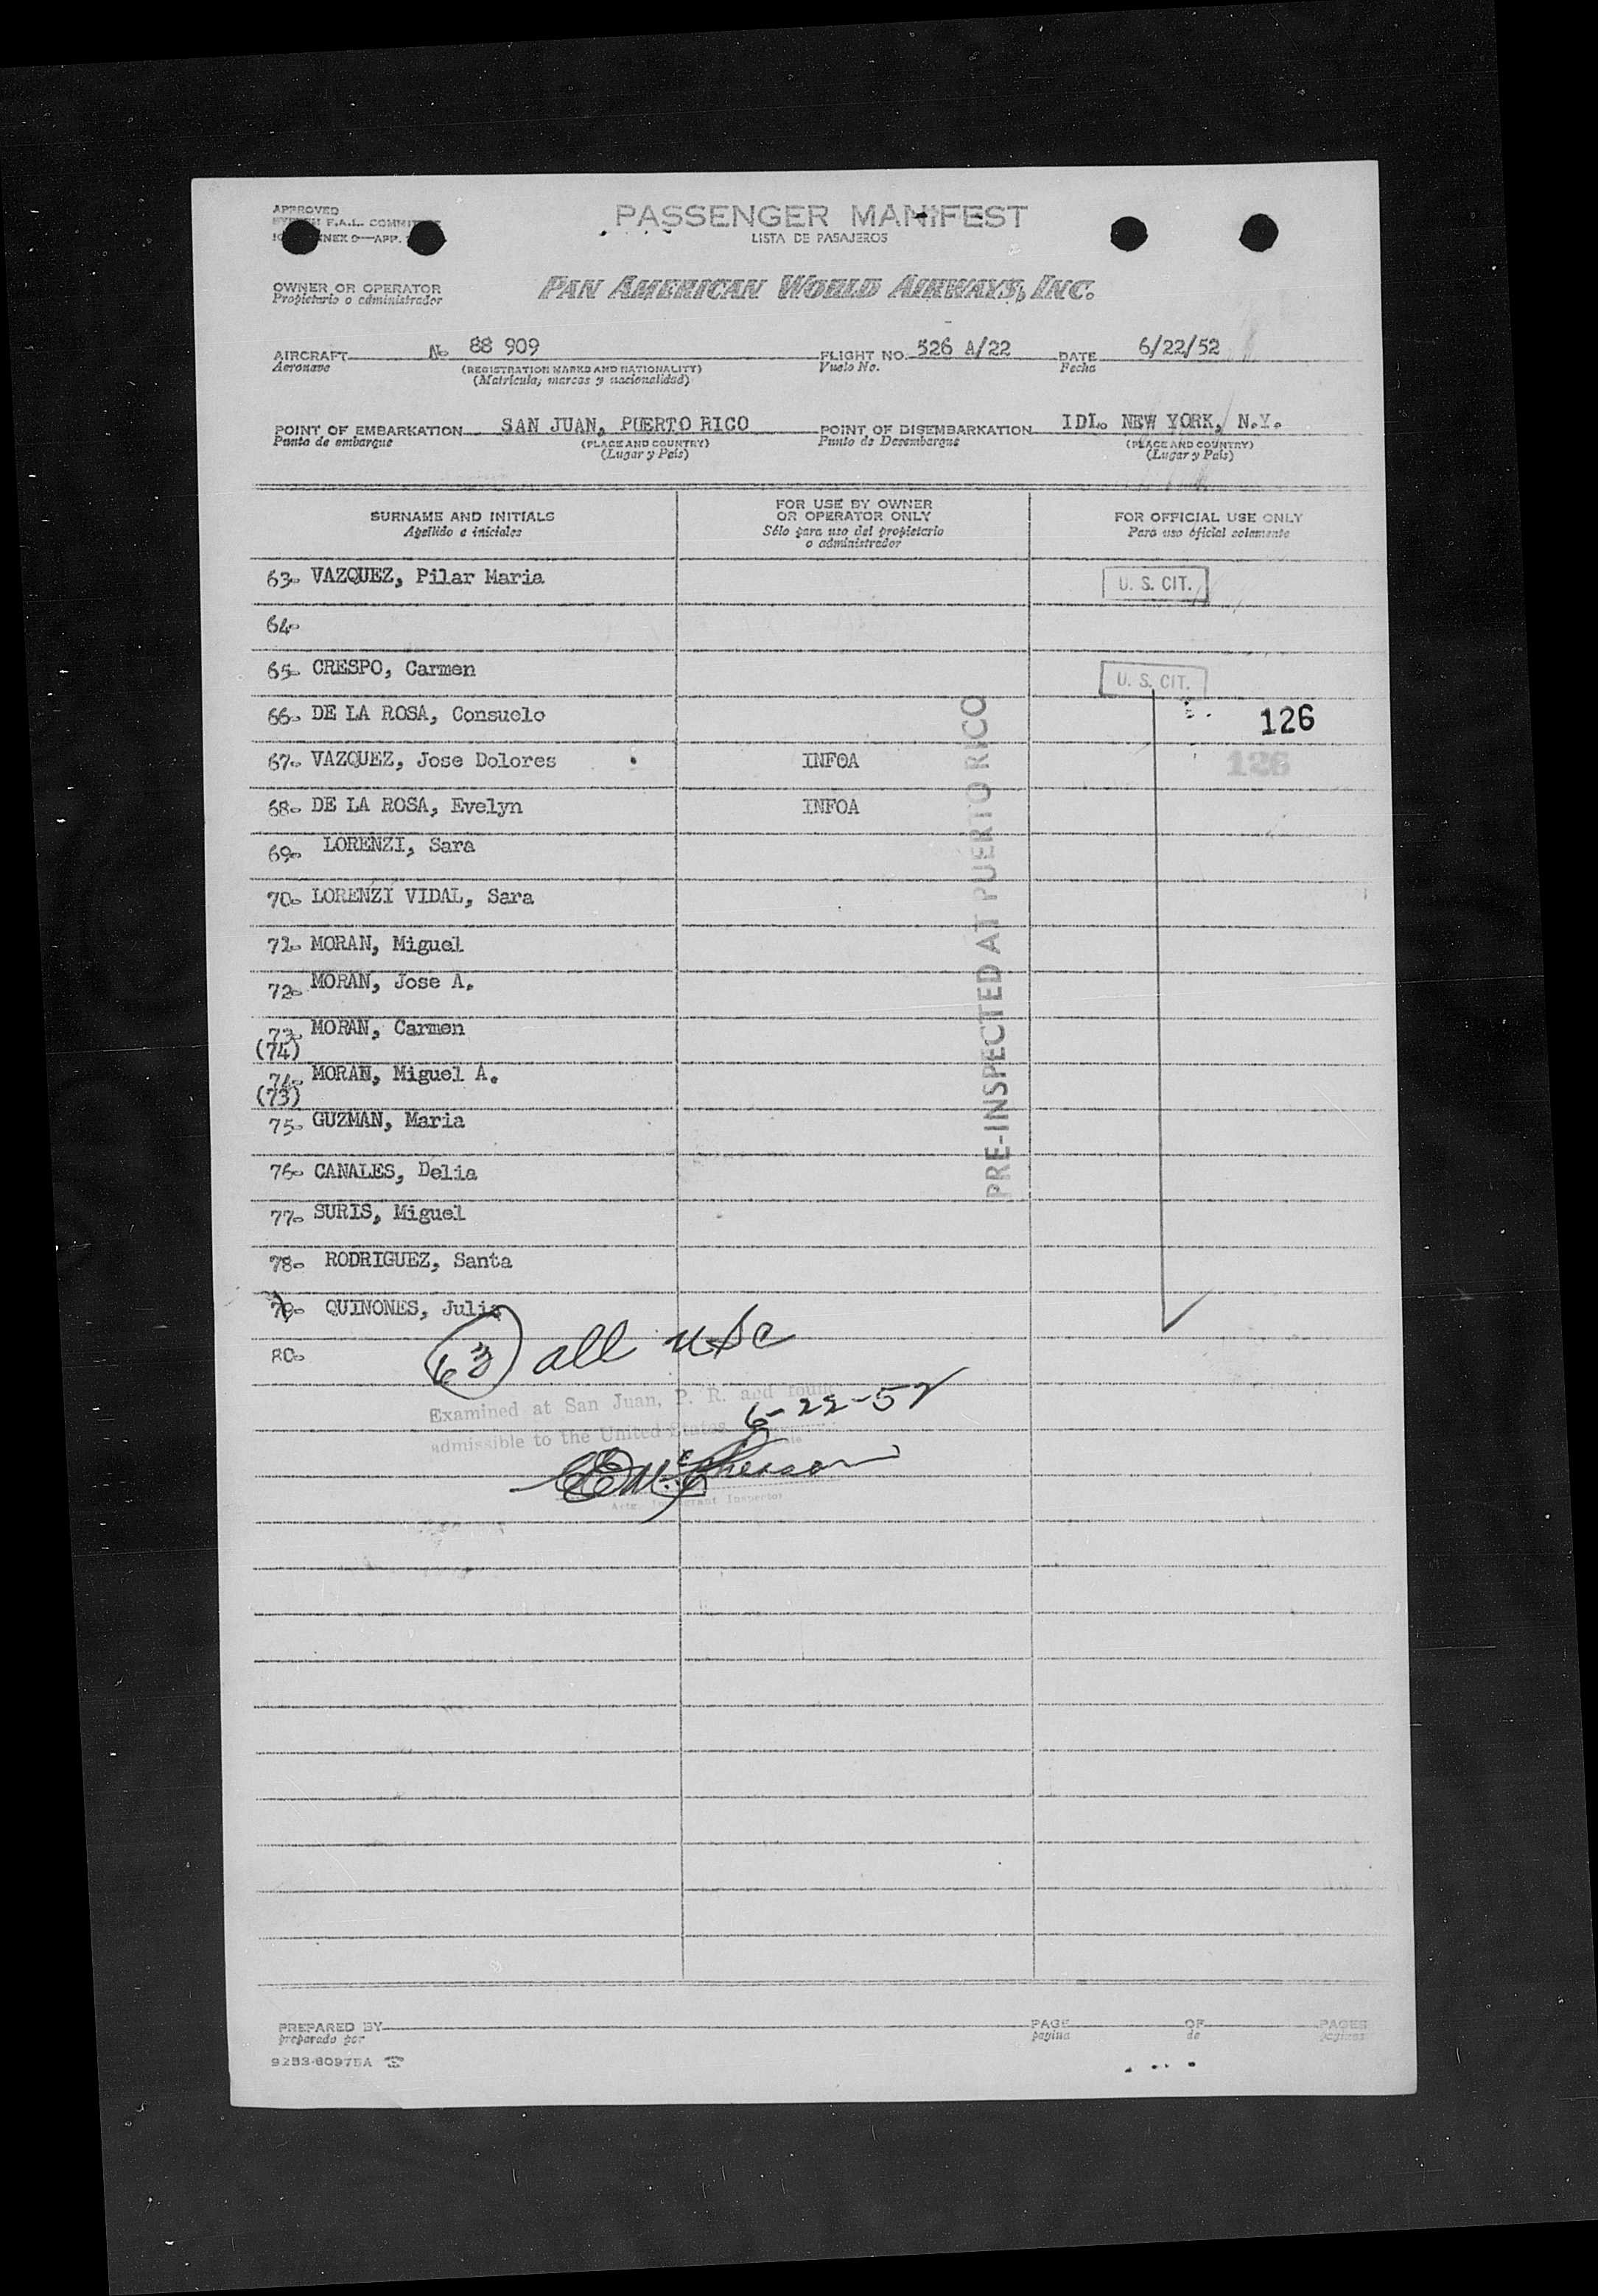 APPROVED
F.A.L.
NEX 9—APP.
PASSENGER MANIFEST
LISTA DE PASAJEROS
OWNER OR OPERATOR
Propietario o administrador
PAN AMERICAN WORLD AIRWAYS, INC.
AIRCRAFT N 88 909 FLIGHT NO. 526 A/22 DATE 6/22/52
Aeronave (REGISTRATION MARKS AND NATIONALITY) Vuelo No. Fecha
(Matricula, marcas y nacionalidad)
POINT OF EMBARKATION SAN JUAN, PUERTO RICO POINT OF DISEMBARKATION IDL. NEW YORK, N.Y.
Punto de embarque (PLACE AND COUNTRY) Punto de Desembarque (PLACE AND COUNTRY)
(Lugar y País) (Lugar y País)
SURNAME AND INITIALS
Apellido e iniciales
FOR USE BY OWNER
OR OPERATOR ONLY
Sólo para uso del propietario
o administrador
FOR OFFICIAL USE ONLY
Para uso oficial solamente
63. VAZQUEZ, Pilar Maria U. S. CIT.
64.
65. CRESPO, Carmen U. S. CIT.
66. DE LA ROSA, Consuelo 126
67. VAZQUEZ, Jose Dolores INFOA 126
68. DE LA ROSA, Evelyn INFOA
69. LORENZI, Sara
70. LORENZI VIDAL, Sara
71. MORAN, Miguel
72. MORAN, Jose A.
73. MORAN, Carmen
(74)
74. MORAN, Miguel A.
(73)
75. GUZMAN, Maria
76. CANALES, Delia
77. SURIS, Miguel
78. RODRIGUEZ, Santa
79. QUINONES, Julia
80.
PRE-INSPECTED AT PUERTO RICO
63 all USC
Examined at San Juan, P. R. and found
admissible to the United States
6-22-52
Inspector
PREPARED BY PAGE OF PAGES
preparado por pagina de paginas
9253-60975A